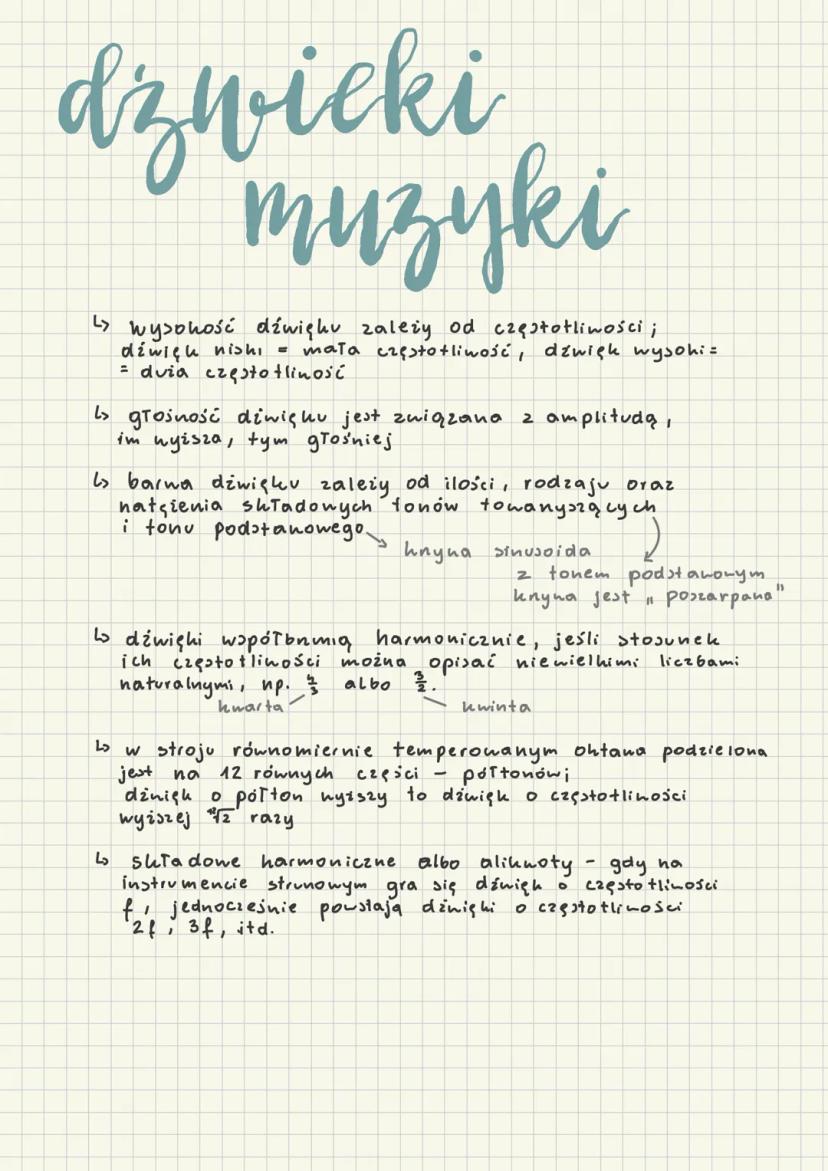 dźwięki
muzyki
↳ wysokość dźwięku zależy od częstotliwości;
dźwięk niski = mała częstotliwość, dźwięk wysoki =
= duża częstotliwość
↳ głośność dźwięku jest związana z amplitudą,
im wyższa, tym głośniej
↳ barwa dźwięku zależy od ilości, rodzaju oraz
natężenia składowych tonów towarzyszących
i tonu podstawowego
krzywa sinusoida
z tonem podstawowym
krzywa jest „poszarpana"
↳ dźwięki współbrzmią harmonicznie, jeśli stosunek
ich częstotliwości można opisać niewielkimi liczbami
naturalnymi, np. 4/3 albo 3/2.
kwarta kwinta
↳ w stroju równomiernie temperowanym oktawa podzielona
jest na 12 równych części – półtonów;
dźwięk o półton wyższy to dźwięk o częstotliwości
wyższej ¹²√2 razy
↳ składowe harmoniczne albo alikwoty – gdy na
instrumencie strunowym gra się dźwięk o częstotliwości
f, jednocześnie powstają dźwięki o częstotliwości
2f, 3f, itd.